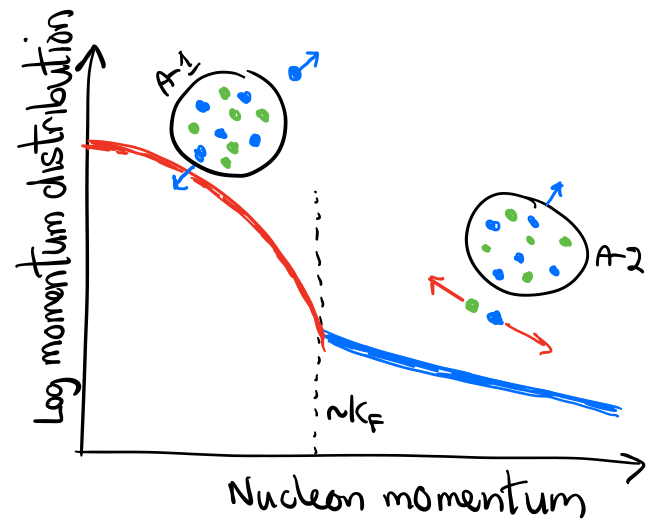 Log momentum distribution
A-1
A-2
~KF
Nucleon momentum